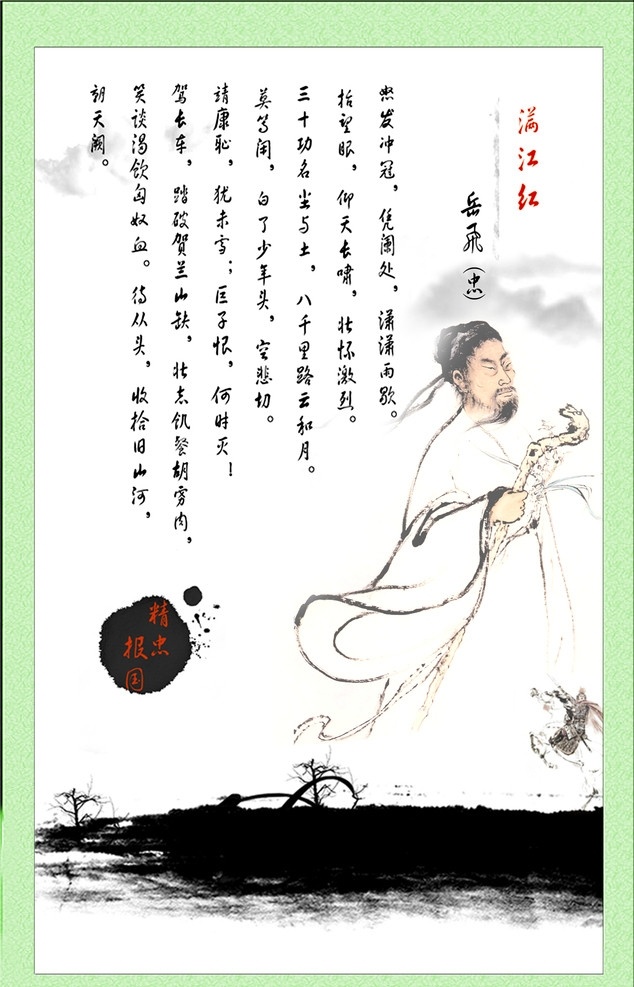 满江红
岳飛(忠)
怒发冲冠，凭阑处，潇潇雨歇。
抬望眼，仰天长啸，壮怀激烈。
三十功名尘与土，八千里路云和月。
莫等闲，白了少年头，空悲切。
靖康耻，犹未雪；臣子恨，何时灭！
驾长车，踏破贺兰山缺，壮志饥餐胡虏肉，
笑谈渴饮匈奴血。待从头，收拾旧山河，
朝天阙。
精忠
报国